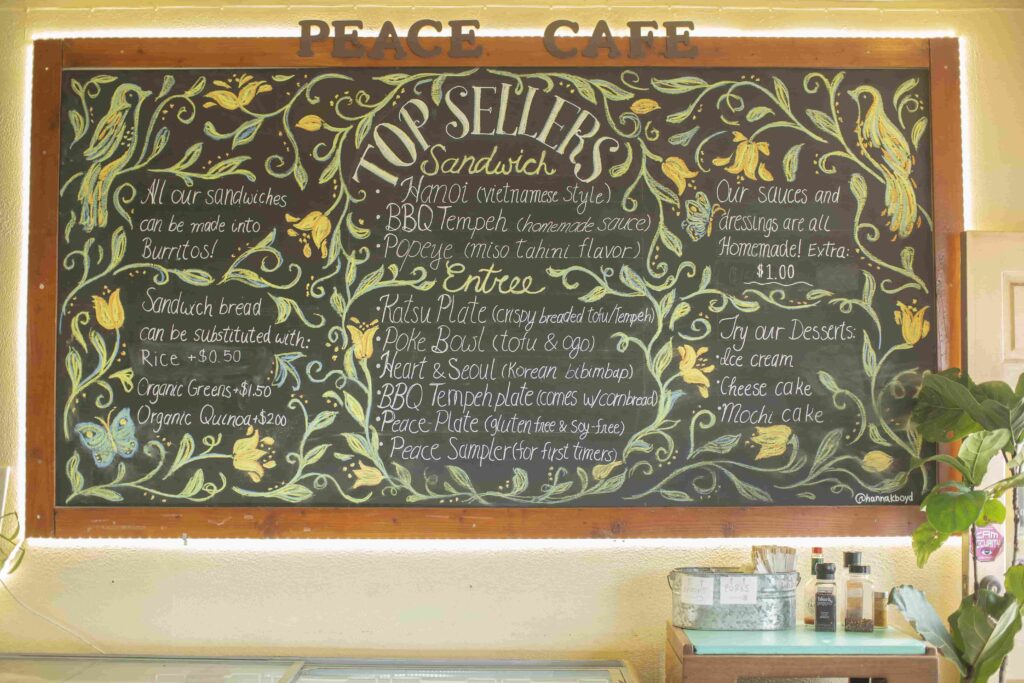 PEACE CAFE
TOP SELLERS
Sandwich
• Hanoi (vietnamese style)
• BBQ Tempeh (homemade sauce)
• Popeye (miso tahini flavor)
Entree
• Katsu Plate (crispy breaded tofu/tempeh)
• Poke Bowl (tofu & ogo)
• Heart & Seoul (Korean bibimbap)
• BBQ Tempeh plate (comes w/cornbread)
• Peace Plate (gluten free & soy-free)
Peace Sampler (for first timers)
All our sandwiches
can be made into
Burritos!
Sandwch bread
can be substituted with:
Rice +$0.50
Organic Greens +$1.50
Organic Quinoa +$2.00
Our sauces and
dressings are all
Homemade! Extra:
$1.00
Try our Desserts:
• Ice cream
• Cheese cake
• Mochi cake
@hannakboyd
FORKS